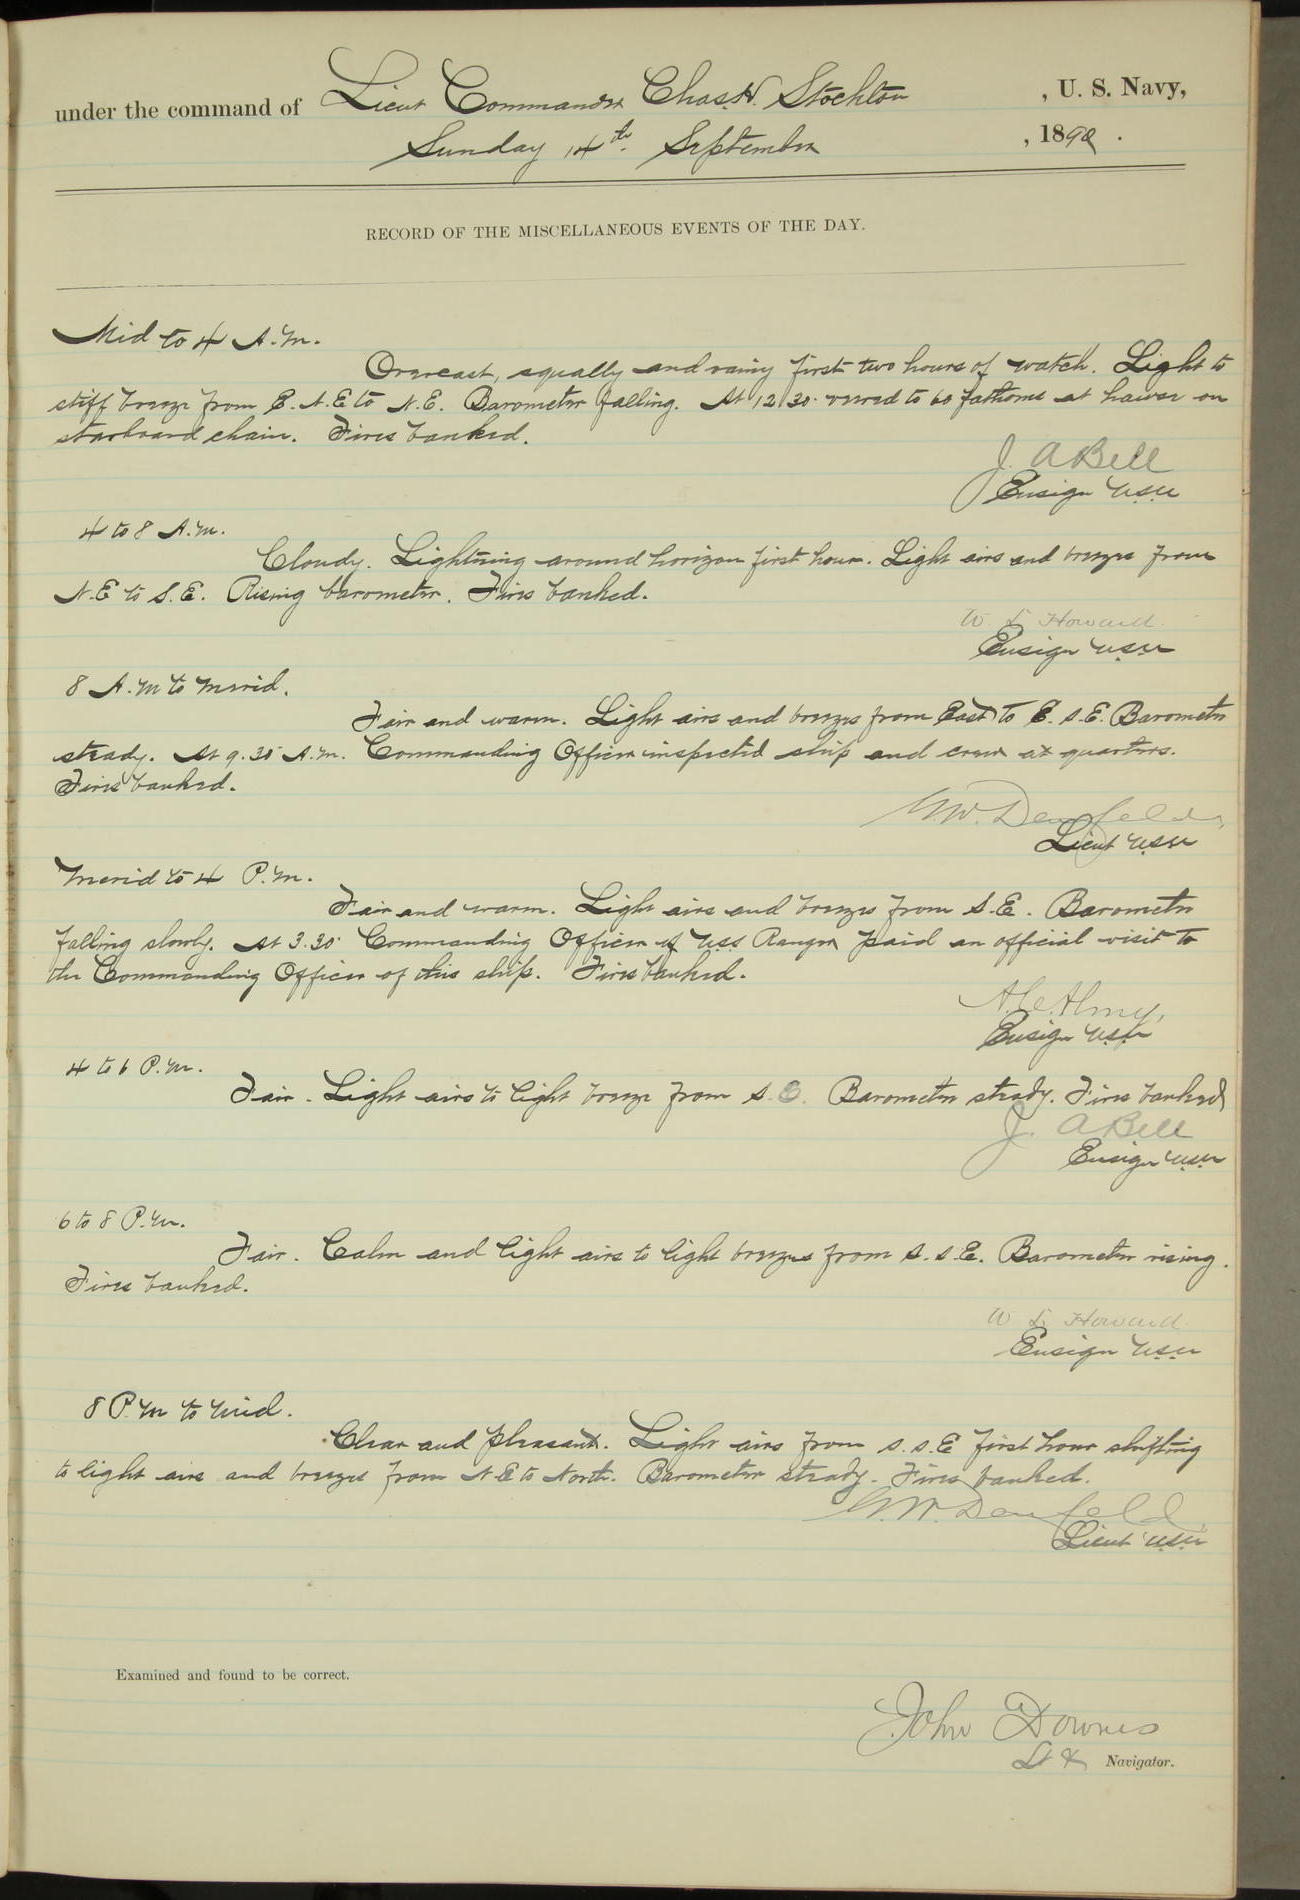 under the command of Lieut Commander Chas. H. Stockton, U. S. Navy,
Sunday 14th September, 1890.
RECORD OF THE MISCELLANEOUS EVENTS OF THE DAY.
Mid to 4 A.M.
Overcast, squally and rainy first two hours of watch. Light to
stiff breeze from E.N.E to N.E. Barometer falling. At 12.30 veered to 60 fathoms at hawse on
starboard chain. Fires banked.
J. A Bell
Ensign USN
4 to 8 A.M.
Cloudy. Lightning around horizon first hour. Light airs and breezes from
N.E to S.E. Rising barometer. Fires banked.
W L Howard
Ensign USN
8 A.M to Merid.
Fair and warm. Light airs and breezes from East to E.S.E. Barometer
steady. At 9.30 A.M. Commanding Officer inspected ship and crew at quarters.
Fires banked.
G.W. Denfeld,
Lieut USN
Merid to 4 P.M.
Fair and warm. Light airs and breezes from S.E. Barometer
falling slowly. At 3.30 Commanding Officer of USS Ranger paid an official visit to
the Commanding Officer of this ship. Fires banked.
A.C. Almy,
Ensign USN
4 to 6 P.M.
Fair. Light airs to light breeze from S.E. Barometer steady. Fires banked
J. A Bell
Ensign USN
6 to 8 P.M.
Fair. Calm and light airs to light breezes from S.S.E. Barometer rising.
Fires banked.
W L Howard
Ensign USN
8 P.M to Mid.
Clear and pleasant. Light airs from S.S.E first hour shifting
to light airs and breezes from N.E to North. Barometer steady. Fires banked.
G.W. Denfeld,
Lieut USN
Examined and found to be correct.
John Downes
Lt & Navigator.